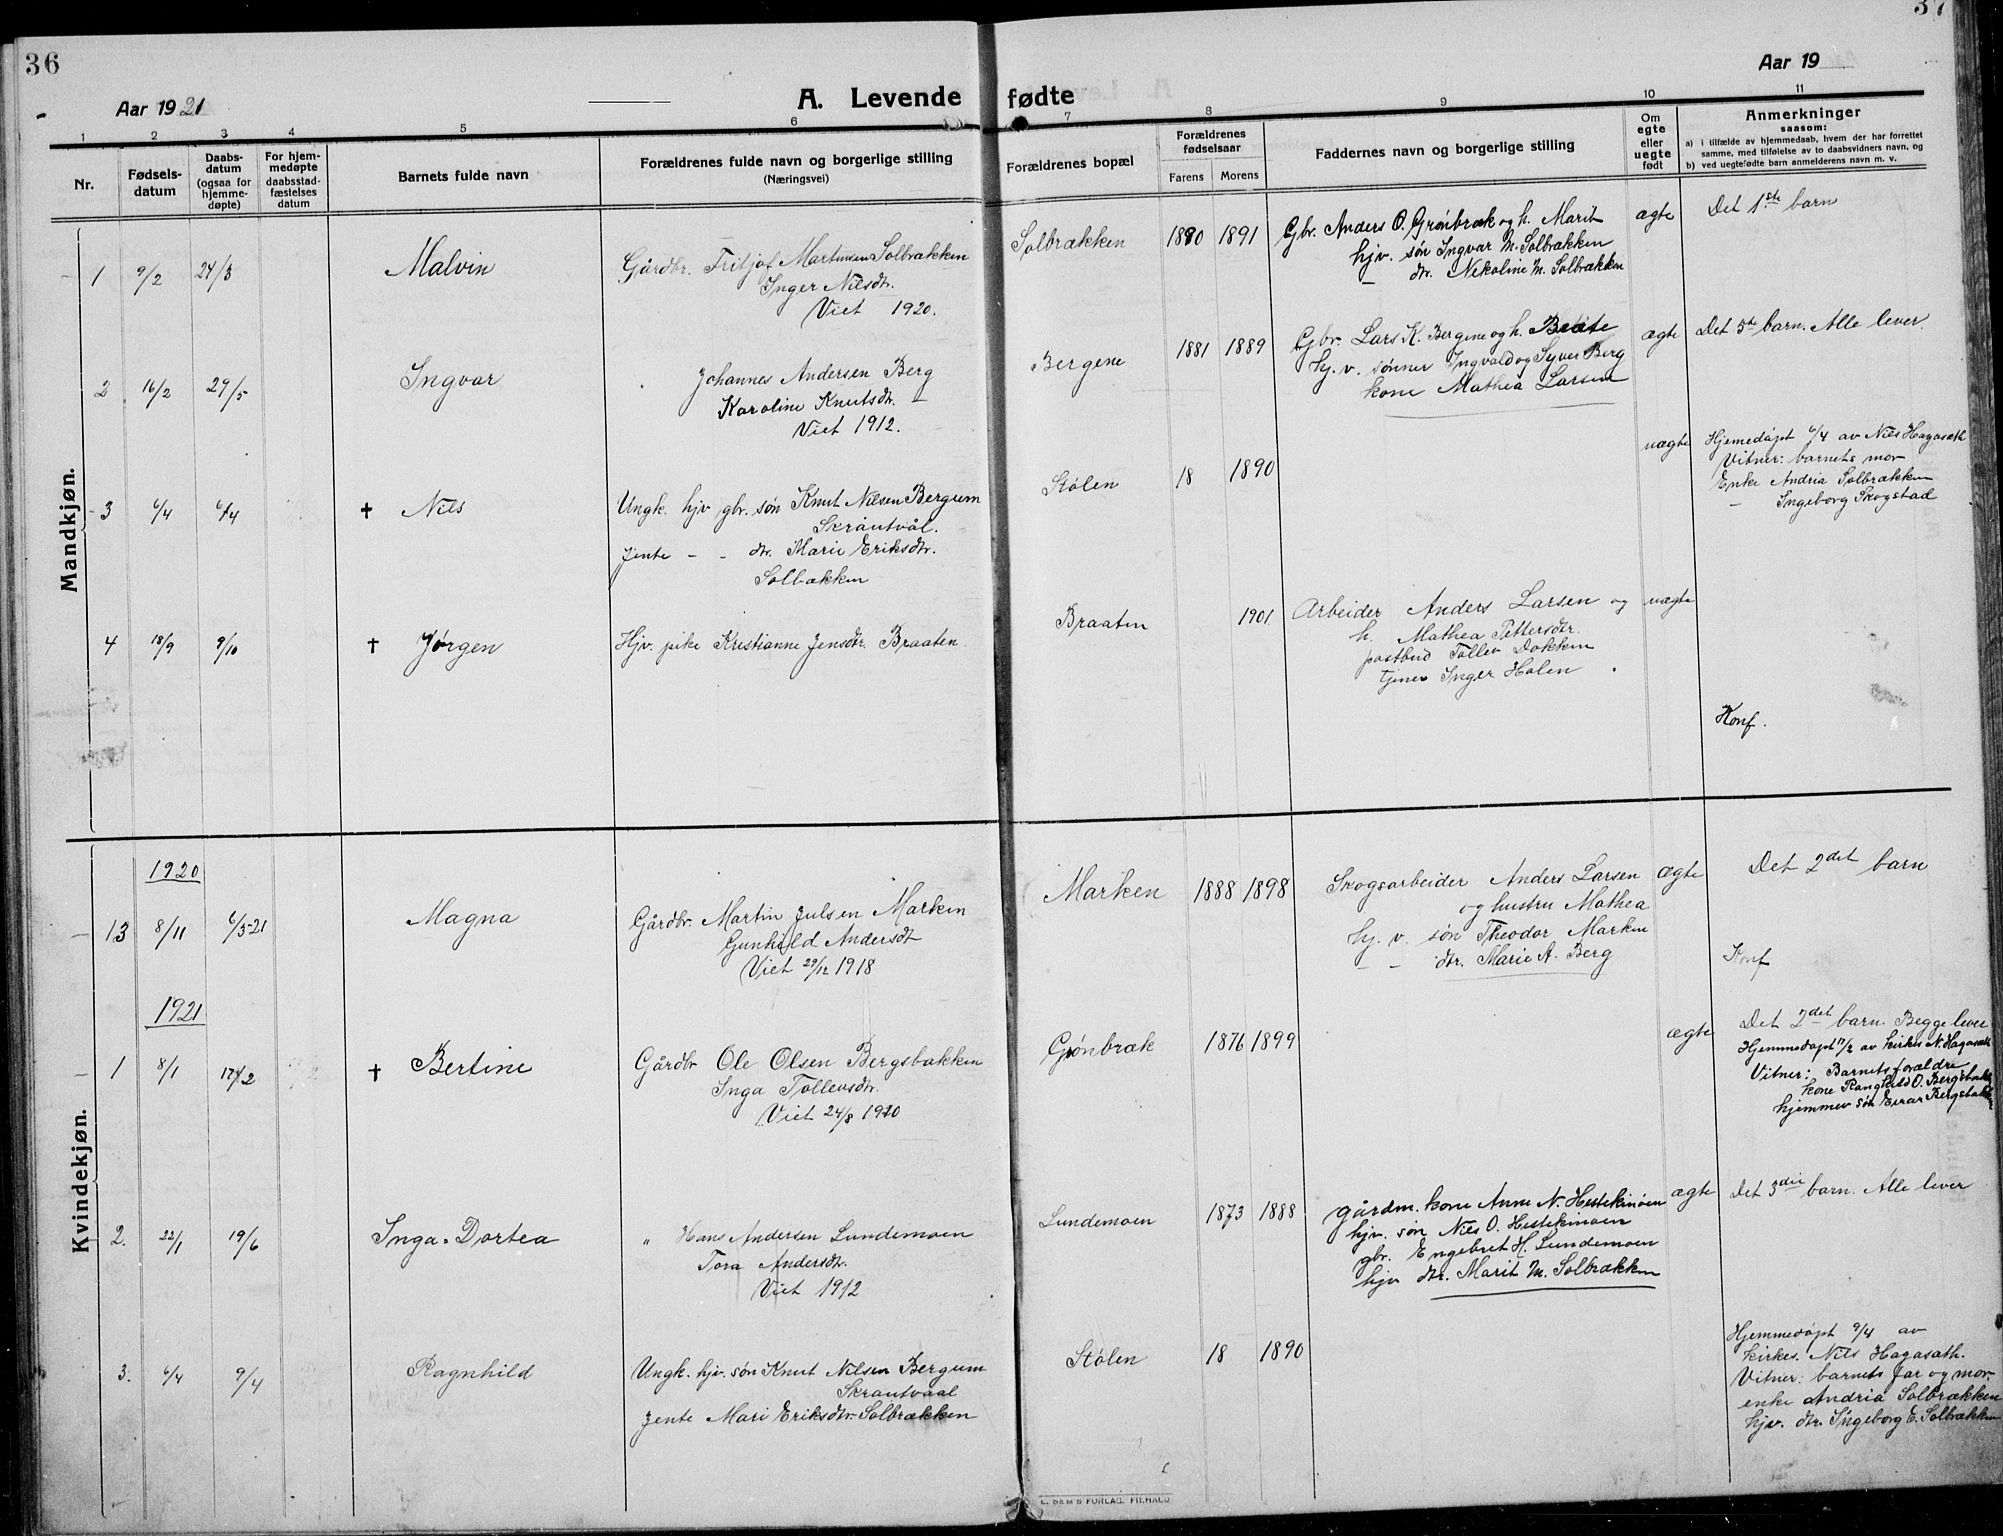 36
37
Aar 1921
A. Levende fødte
Aar 19
1 2 3 4 5 6 7 8 9 10 11
Nr.
Fødsels-
datum
Daabs-
datum
(ogsaa for
hjemme-
døpte)
For hjem-
medøpte
daabsstad-
fæstelses
datum
Barnets fulde navn
Forældrenes fulde navn og borgerlige stilling
(Næringsvei)
Forældrenes bopæl
Forældrenes
fødselsaar
Farens Morens
Faddernes navn og borgerlige stilling
Om
egte
eller
uegte
født
Anmerkninger
saasom:
a) i tilfælde av hjemmedaab, hvem der har forrettet
samme, med tilføielse av to daabsvidners navn, og
b) ved uegtefødte barn anmelderens navn m. v.
Mandkjøn.
1 9/2 24/3 Malvin
Gårdbr. Fritjof Martinsen Solbrækken
Inger Nilsdtr.
Viet 1920.
Solbrækken 1880 1891
Gbr. Anders O. Grønbræk og h. Marit
hjv. søn Ingvar M. Solbrækken
– dtr. Nikoline M. Solbrækken
ægte
Det 1ste barn
2 16/2 29/5 Ingvar
Johannes Andersen Berg
Karoline Knutsdtr.
Viet 1912.
Bergene 1881 1889
Gbr. Lars K. Bergene og h. Beate
hj. v. sønner Ingvald og Syver Berg
kone Mathea Larsen
ægte
Det 5te barn. Alle lever.
3 6/4 6/4 † Nils
Ungk. hjv gbr. søn Knut Nilsen Bergum
Skrautvål.
Jente – – dtr. Marie Eriksdtr.
Solbækken
Stølen 18 1890
uægte
Hjemedøpt 6/4 av Nils Hagasæth
Vitner: barnets mor
Enke Andria Solbrækken
– Ingeborg Skogstad
4 18/9 9/10 † Jørgen
Hjv. pike Kristianne Jensdtr. Braaten.
Braaten 1901
Arbeider Anders Larsen og
h. Mathea Pettersdtr.
postbud Tollev Dokken
tjener Inger Holen.
uægte
Konf.
Kvindekjøn.
1920
13 8/11 6/3-21 Magna
Gårdbr. Martin Julsen Marken
Gunhild Andersdt
Viet 29/12 1918
Marken 1888 1898
Skogsarbeider Anders Larsen
og hustru Mathea
hj. v. søn Theodor Marken
– – dtr. Marie A. Berg
ægte
Det 2det barn
Konf
1921
1 8/1 17/2 † Bertine
Gårdbr Ole Olsen Bergsbakken
Inga Tollevsdtr.
Viet 24/8 1920
Grønbræk 1876 1899
ægte
Det 2det barn. Begge lever
Hjemmedøpt 17/2 av kirkes. N. Hagasæth
Vitner: Barnets forældre
kone Ranghild O. Bergsbakk
hjemmev søn Einar Bergsbakken
2. 22/1 19/6 Inga Dortea
" Hans Andersen Lundemoen
Tora Andersdtr.
Viet 1912
Lundemoen 1873 1888
gårdm. kone Anne N. Hestekinoen
hjv. søn Nils O. Hestekinoen
gbr. Engebret H. Lundemoen
hjv dtr. Marit M. Solbrækken
ægte
Det 3die barn. Alle lever
3. 6/4 9/4 Ragnhild
Ungk. hjv. søn Knut Nilsen Bergum
Skrautvaal
Jente Mari Eriksdtr. Solbrækken
Stølen 18 1890
Hjemmedøpt 9/4 av
kirkes. Nils Hagasæth.
Vitner: barnets far og mor
enke Andria Solbrækken
hjv. dtr. Ingeborg E. Solbrækken
E. SEM'S FORLAG, FR.HALD